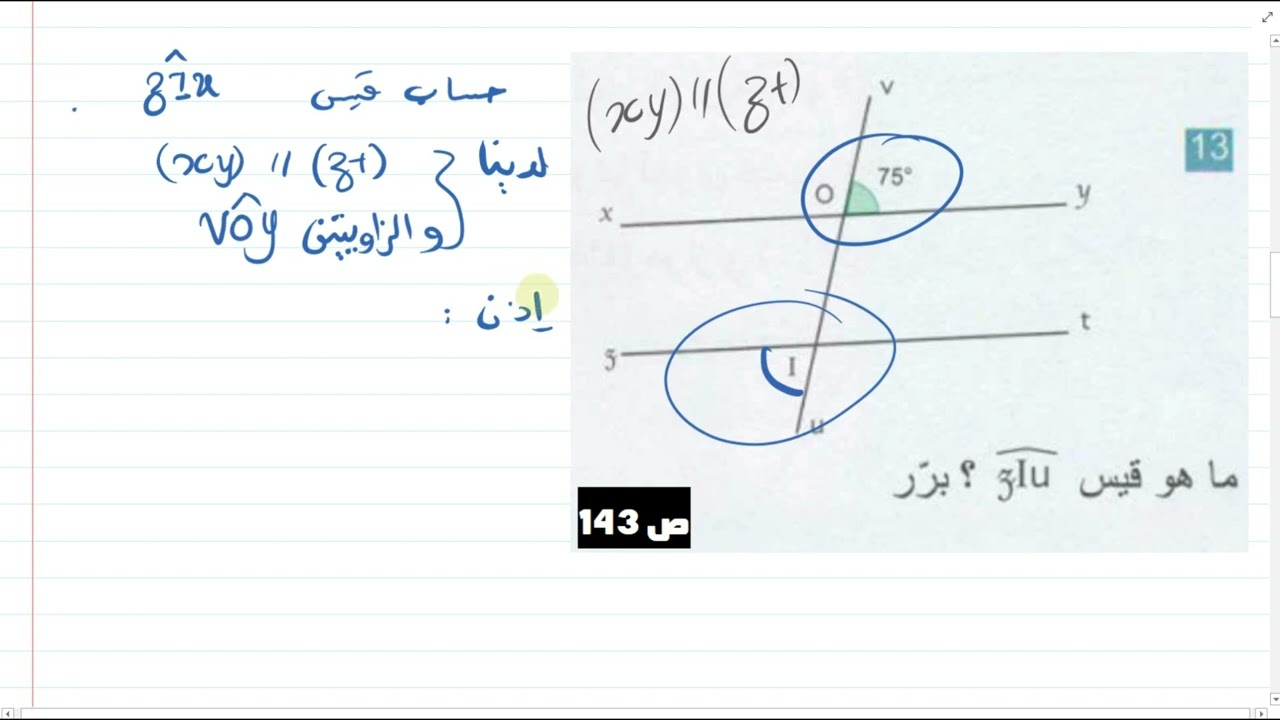 حساب قيس zÎu
لدينا (xy) // (zt)
و الزاويتين VÔy
إذن :
(xy) // (zt)
13
v
75°
O
x
y
t
z
I
u
ما هو قيس zIu ؟ برّر
ص 143